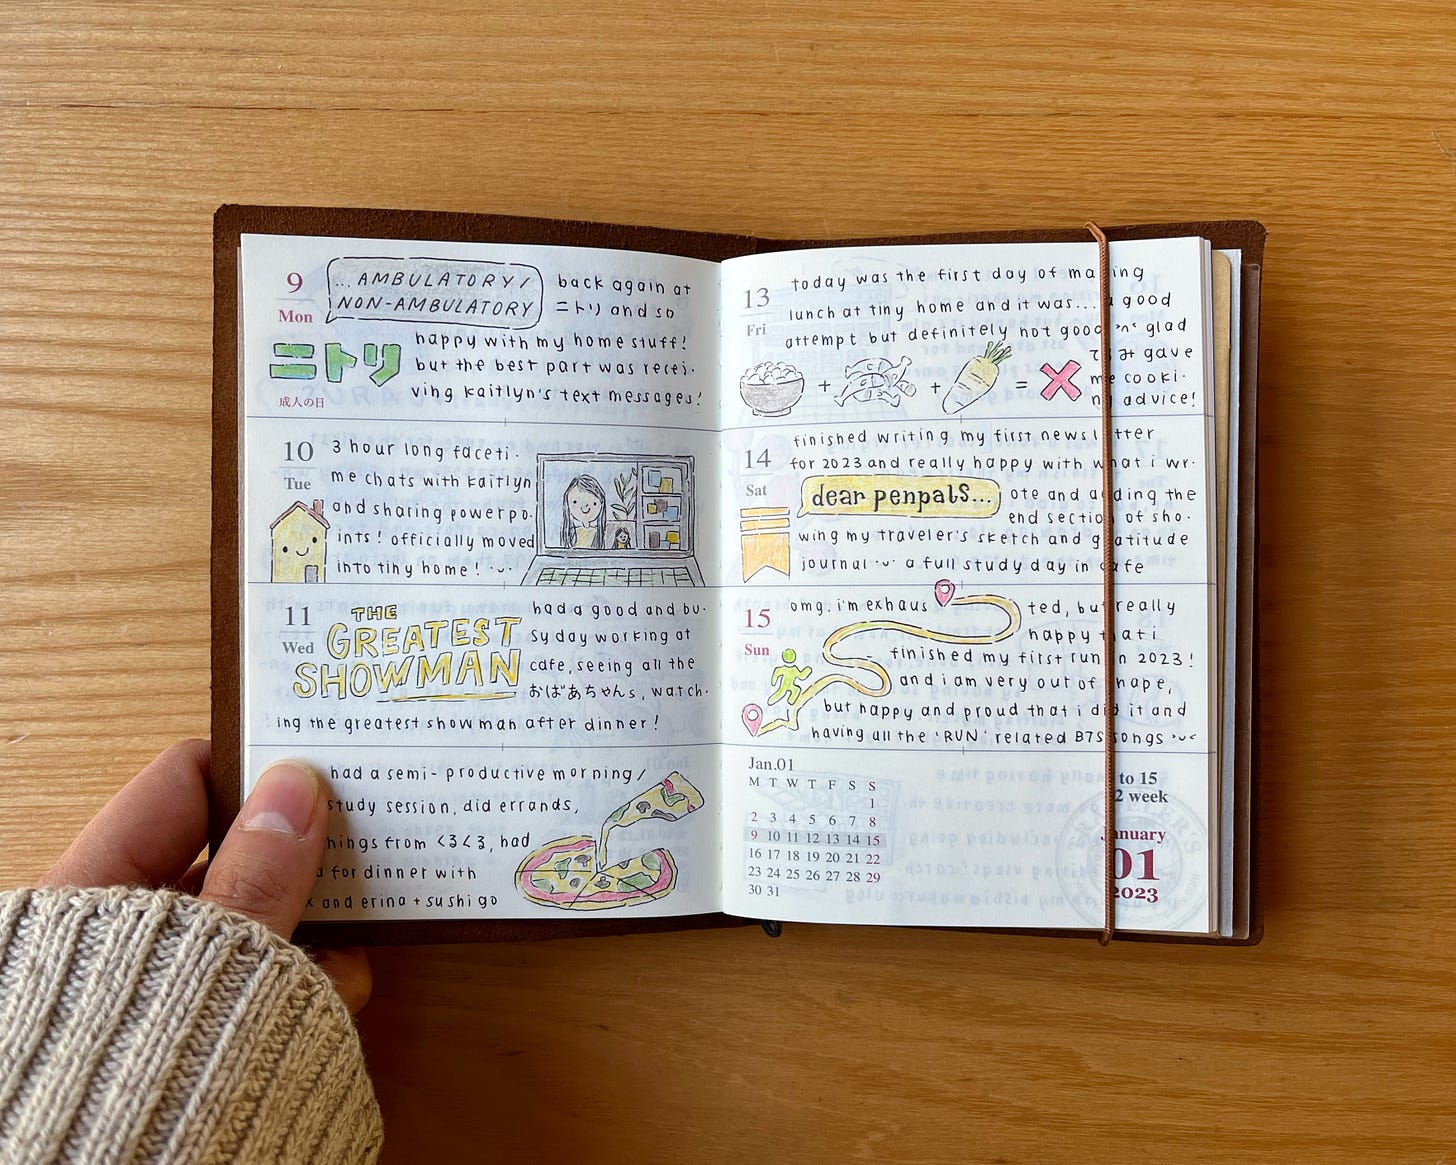 9
Mon
...AMBULATORY/
NON-AMBULATORY
back again at
ニトリ and so
ニトリ
happy with my home stuff!
but the best part was recei-
ving kaitlyn's text messages!
成人の日
10
Tue
3 hour long faceti-
me chats with kaitlyn
and sharing powerpo-
ints! officially moved
into tiny home!
11
Wed
THE
GREATEST
SHOWMAN
had a good and bu-
sy day working at
cafe, seeing all the
おばあちゃんs, watch-
ing the greatest showman after dinner!
had a semi-productive morning/
study session, did errands,
hings from <3<3, had
for dinner with
and erina + sushi go
13
Fri
today was the first day of ma ing
lunch at tiny home and it was... a good
attempt but definitely not good glad
gave
me cooki-
ng advice!
+ + =
14
Sat
finished writing my first news l tter
for 2023 and really happy with what i wr-
dear penpals...
ote and adding the
end section of sho-
wing my traveler's sketch and gratitude
journal a full study day in cafe
15
Sun
omg. i'm exhaus ted, but really
happy that i
finished my first run in 2023!
and i am very out of shape,
but happy and proud that i did it and
having all the 'RUN' related BTS songs
Jan.01
M T W T F S S
1
2 3 4 5 6 7 8
9 10 11 12 13 14 15
16 17 18 19 20 21 22
23 24 25 26 27 28 29
30 31
to 15
2 week
January
01
2023